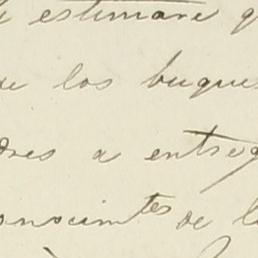 y estimaré q
de los buques
dres a entreg
conocimtes de l